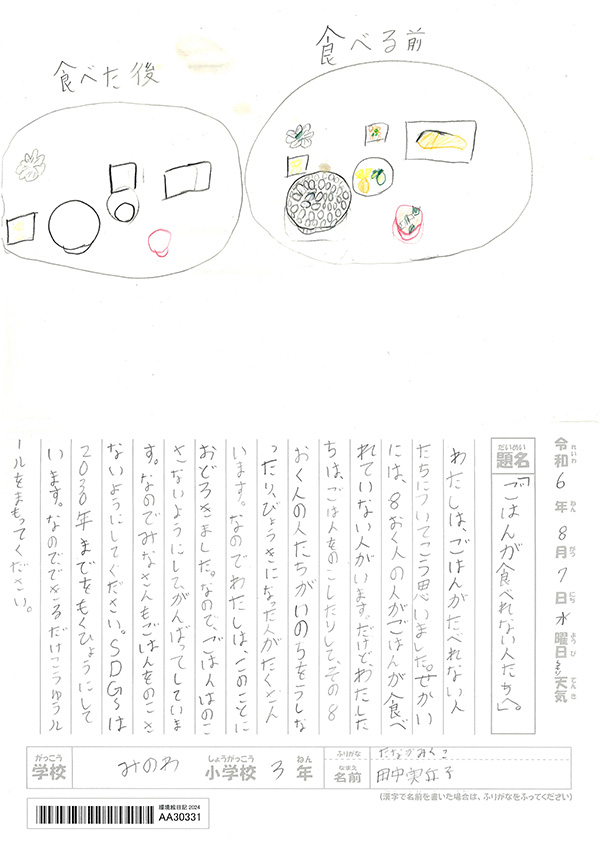 食べた後
食べる前
令和6年8月7日水曜日天気
れいわ ねん がつ にち ようび てんき
だいめい
題名
「ごはんが食べれない人たちへ」。
わたしは、ごはんがたべれない人
たちについてこう思いました。せかい
には、8おく人の人がごはんが食べ
れていない人がいます。だけど、わたした
ちは、ごはんをのこしたりして、その8
おく人の人たちがいのちをうしな
ったり、びょうきになった人がたくさん
います。なのでわたしは、このことに
おどろきました。なので、ごはんはのこ
さないようにして、がんばってしていま
す。なのでみなさんもごはんをのこさ
ないようにしてください。SDGsは
2030年までをもくひょうにして
います。なのでできるだけこうゆうル
ールをまもってください。
がっこう
学校
みのわ
しょうがっこう
小学校
3
ねん
年
ふりがな
なまえ
名前
田中実
子
(漢字で名前を書いた場合は、ふりがなをふってください)
環境絵日記 2024
AA30331